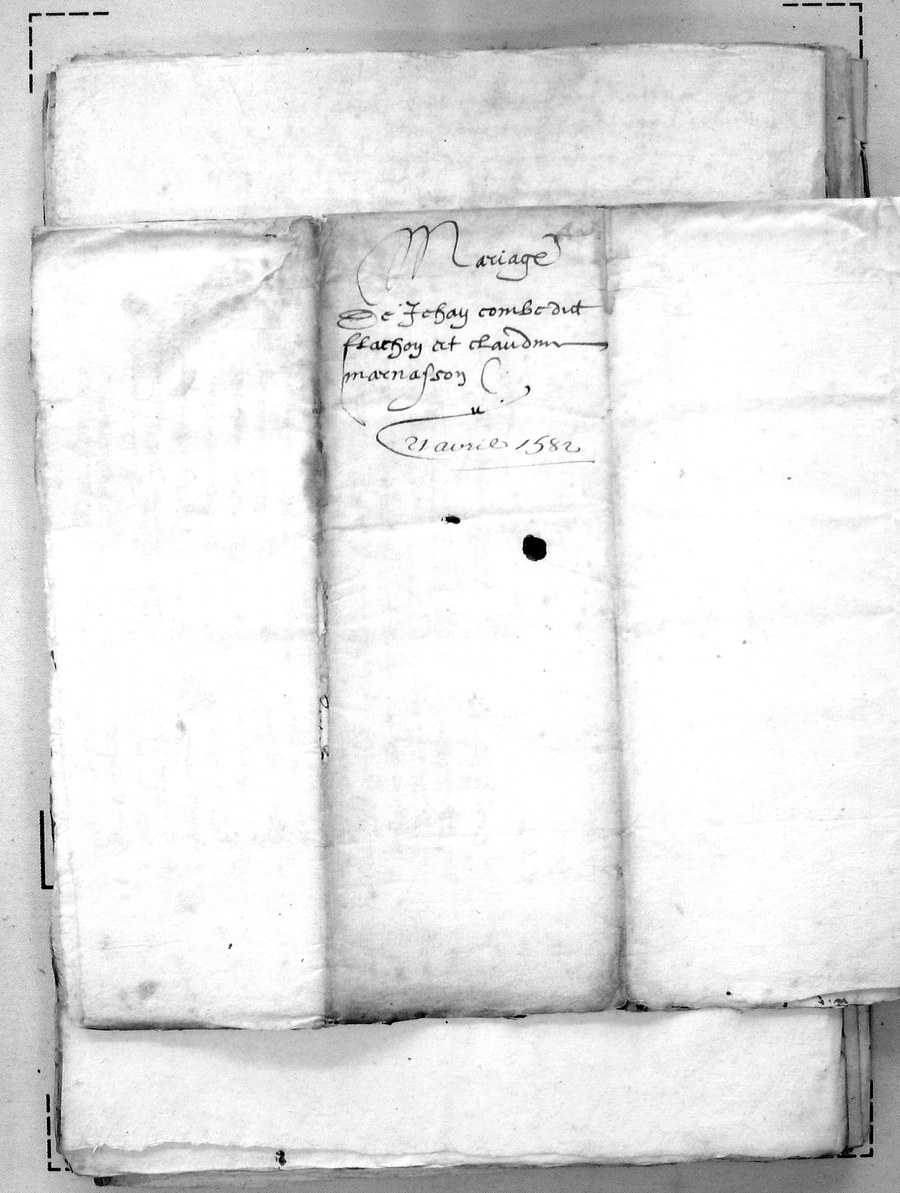 Mariage
De Jehan combe dict
flachon et claudine
marnasson
21 avril 1582